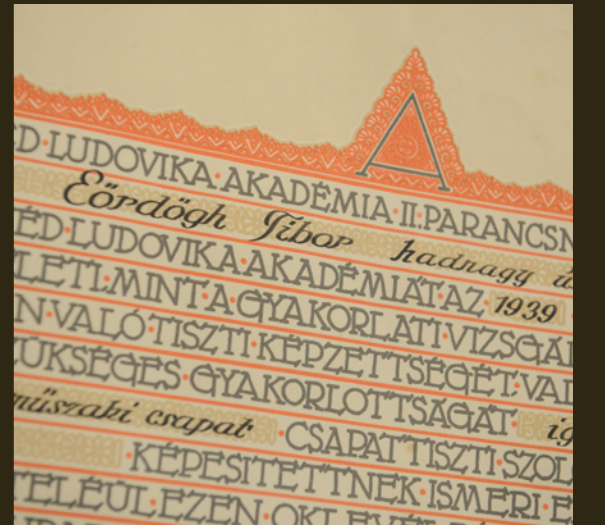 A
ÉD·LUDOVIKA·AKADÉMIA·II·PARANCSN
Eördögh Tibor hadnagy ú
ÉD·LUDOVIKA·AKADÉMIÁT·AZ 1939
LETI·MINT·A·GYAKORLATI·VIZSGÁ
N·VALÓ·TISZTI·KÉPZETTSÉGÉT·VAL
ÜKSÉGES·GYAKORLOTTSÁGÁT· ig
műszaki csapat ·CSAPATTISZTI·SZOL
·KÉPESITETTNEK·ISMERI·E
TELÉÜL·EZEN·OKLEVÉL